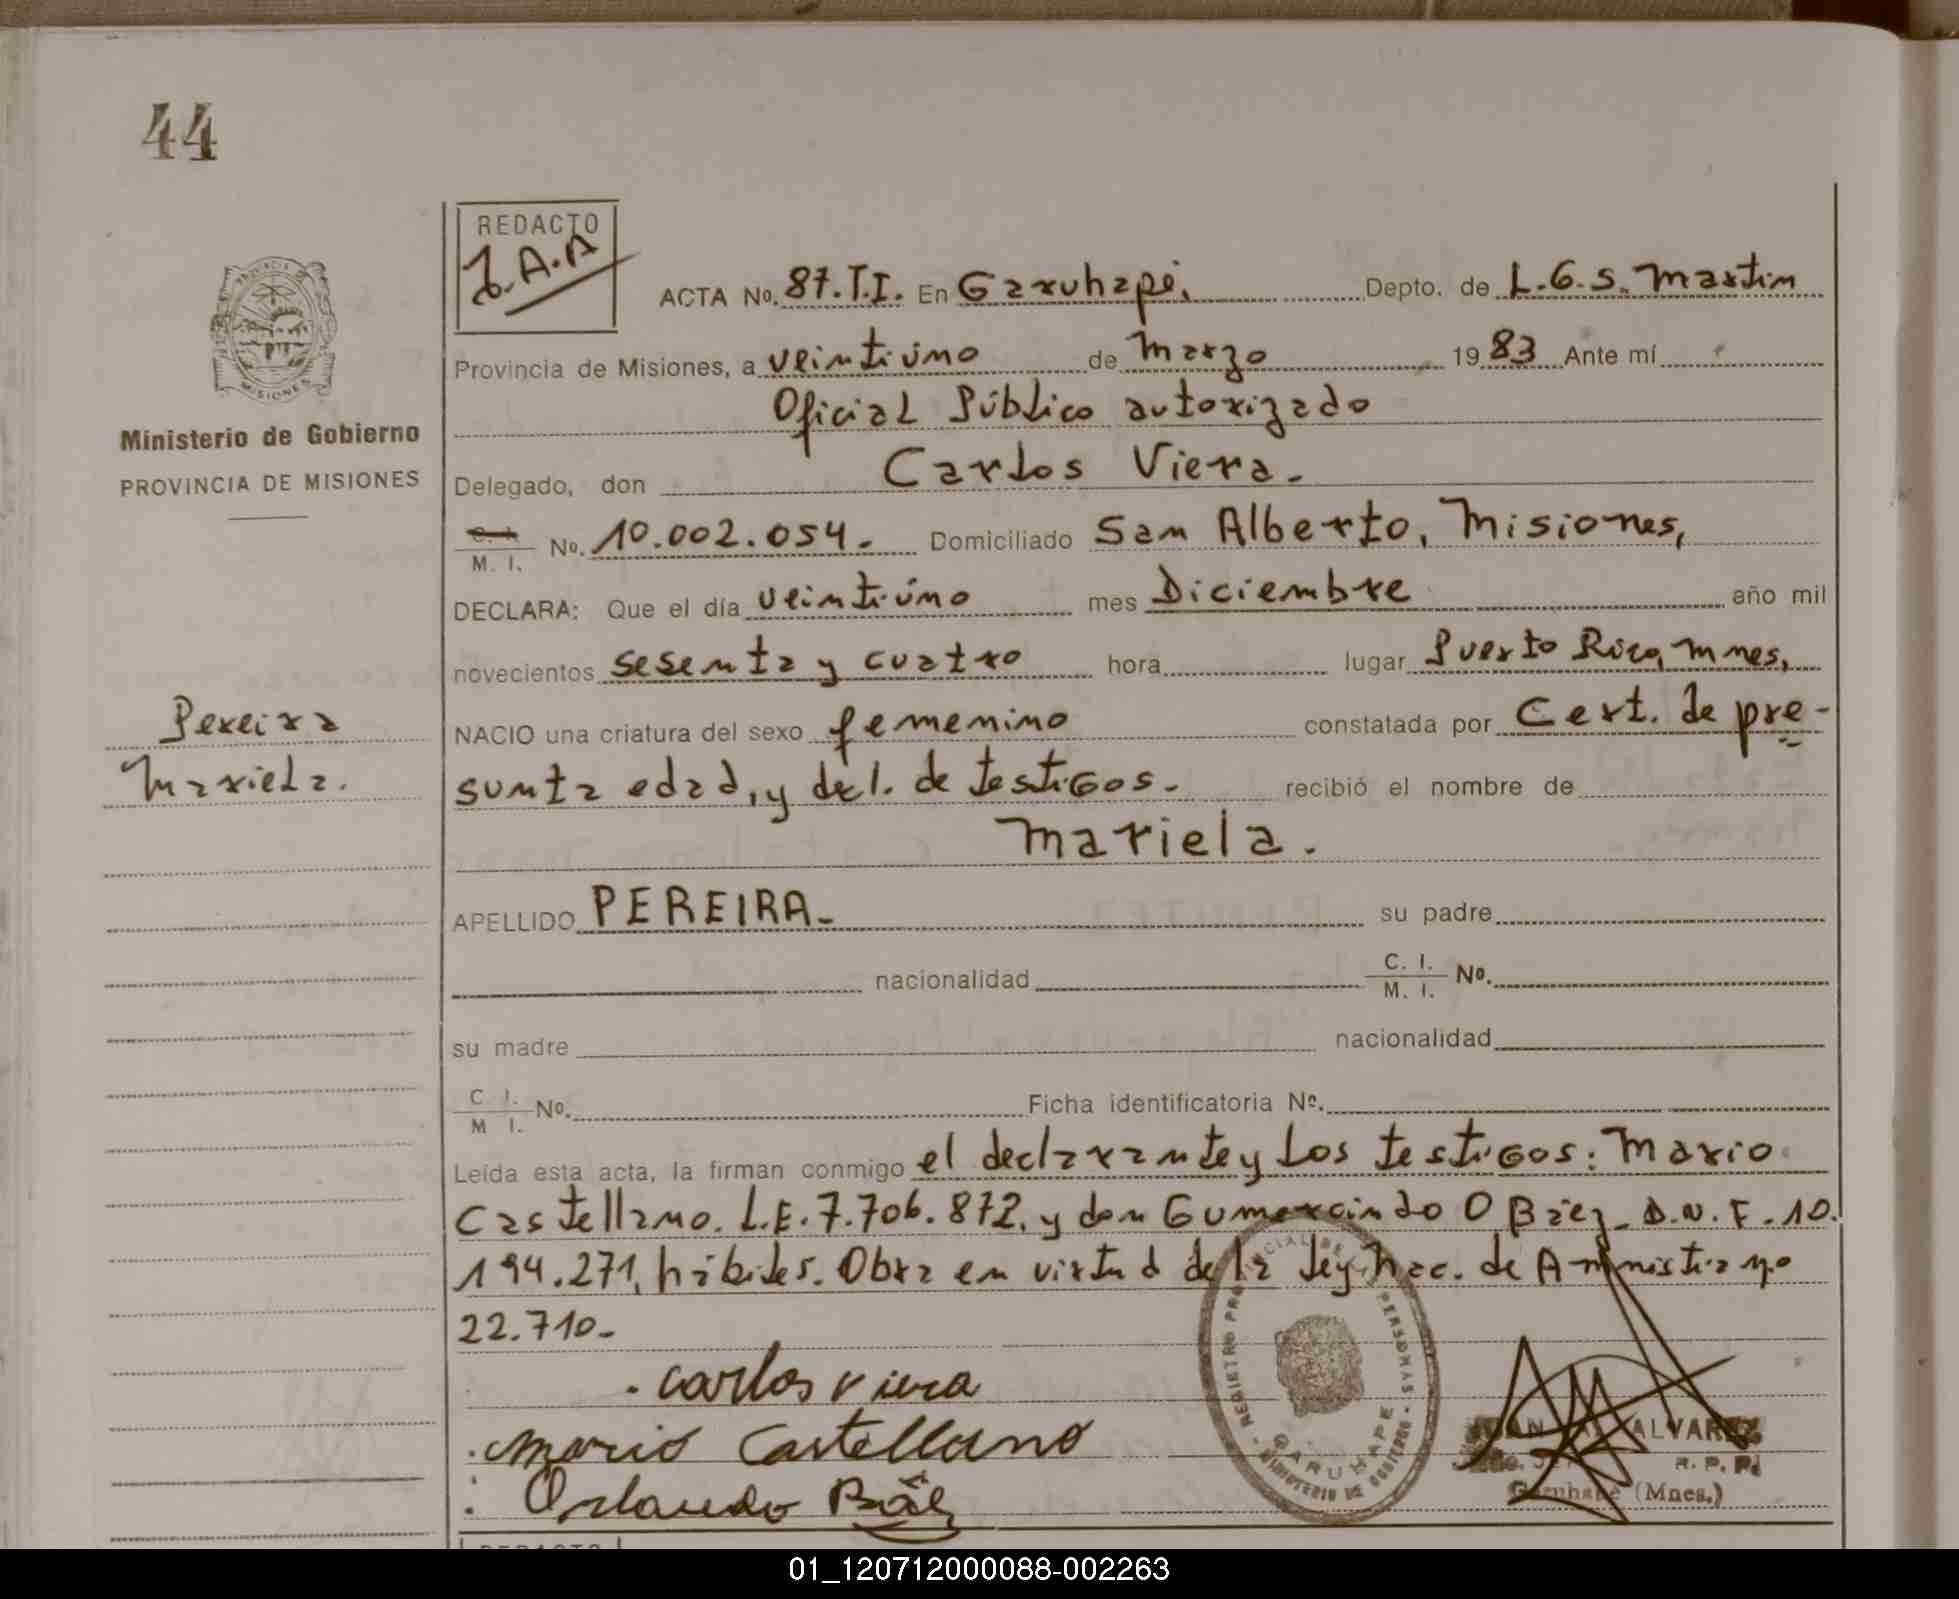 44
REDACTO
J.A.A
ACTA No. 87.T.I. En Garuhapé, Depto. de L.G.S. Martin
Provincia de Misiones, a veintiúno de Marzo 1983 Ante mí
Oficial Público autorizado
Ministerio de Gobierno
PROVINCIA DE MISIONES
Delegado, don Carlos Viera.
C. I. / M. I. No. 10.002.054. Domiciliado San Alberto, Misiones,
DECLARA: Que el día veintiúno mes Diciembre año mil
novecientos sesenta y cuatro hora lugar Puerto Rico, Mnes,
Pereira
Mariela.
NACIO una criatura del sexo femenino constatada por Cert. de pre-
sunta edad, y decl. de testigos. recibió el nombre de
Mariela.
APELLIDO PEREIRA. su padre
nacionalidad C. I. / M. I. No.
su madre nacionalidad
C. I. / M. I. No. Ficha identificatoria No.
Leída esta acta, la firman conmigo el declarante y los testigos: Mario
Castellano. L.E. 7.706.872, y don Gumercindo O Báez. D.N.I. 10.
194.271, hábiles. Obra en virtud de la ley Nac. de Amnistia no
22.710-
Carlos Viera
Mario Castellano
Orlando Báez
REGISTRO PROVINCIAL DE PERSONAS
GARUHAPE
MINISTERIO DE GOBIERNO
ALVAREZ
R. P. P.
Garuhapé (Mnes.)
REDACTO
01_120712000088-002263